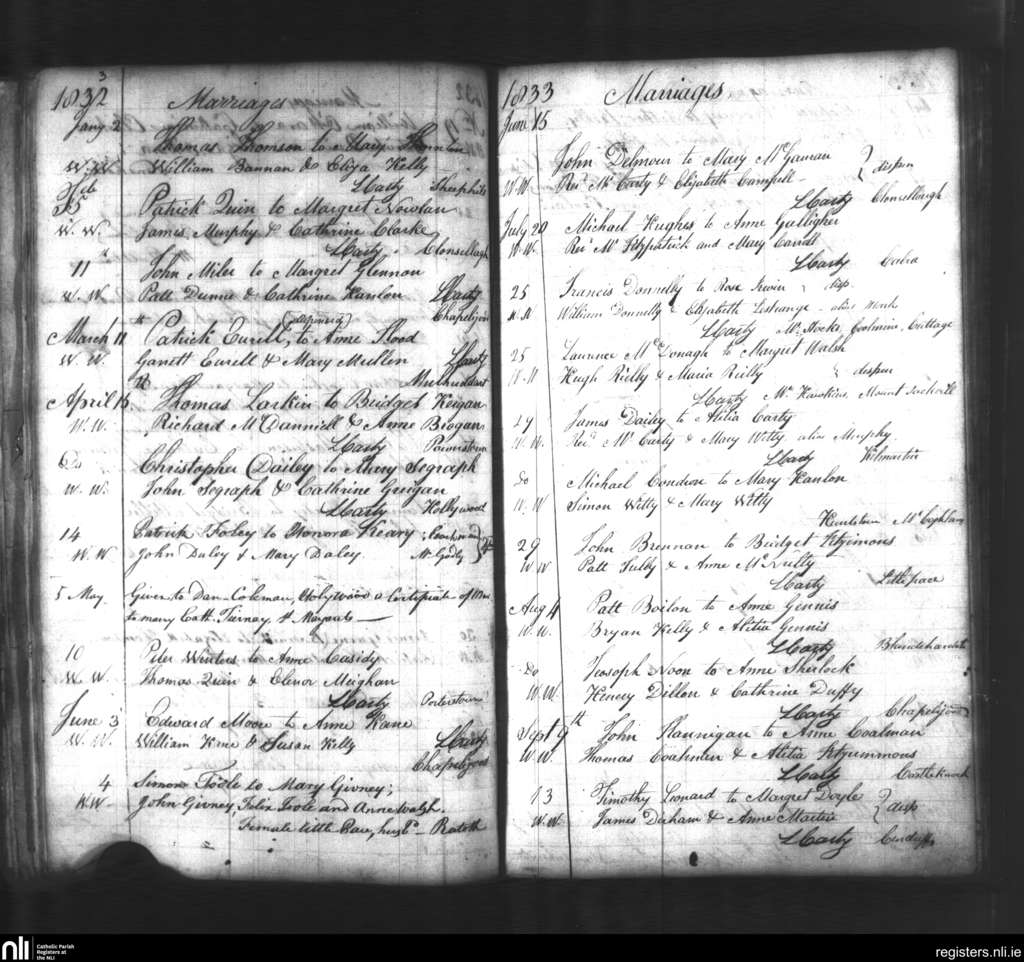 3
1832 Marriages
Jany 2
Thomas Thomson to Mary
W.W. William Bannan & Eliza Kelly
L Carty Sheephill
Feb
5 Patrick Quin to Margret Nowlan
W. W. James Murphy & Cathrine Clarke
L Carty Clonsellagh
11 John Miler to Margret Glennon
W. W Patt Dunne & Cathrine Hanlon L Carty
Chapelizod
March 11 Patrick Curell, to Anne Flood
W. W. Garrett Curell & Mary Mullen L Carty
Mulhuddart
April 15 Thomas Larkin to Bridget Keigan
W. W. Richard McDanniell & Anne Brogan
L Carty Powerstown
Do Christopher Dailey to Mary Segraph
W. W. John Segraph & Cathrine Greigan
L Carty Hollywood
14 Patrick Foley to Honora Keary
W W John Daley & Mary Daley
5 May Given to Dan Coleman, Holywood a Certificate of
to marry Cath. Tiernay St Margarets
10 Peter Winters to Anne Casidy
W W. Thomas Quin & Elenor Meighan
L Carty Porterstown
June 3 Edward Moore to Anne Kane
W. W. William Kane & Susan Kelly L Carty
Chapelizod
4 Simon Toole to Mary Givney;
W W John Givney, Felix Toole and Anne Walsh.
Female little Pace, husbd Ratoth
1833 Marriages
June 15
John Delmour to Mary McGaman
W. W. Revd Mr Carty & Elizabeth Campell dispen
L Carty Clonsellaugh
July 20 Michael Hughes to Anne Galligher
W. W. Revd Mr Fitzpatrick and Mary Carroll
L Carty Cabra
25 Francis Donnelly to Rose Irwin disp
W. W William Donnelly & Elizabeth Lestrange alias
L Carty Coolmine Cottage
25 Laurence McDonagh to Margret Walsh
W. W Hugh Rielly & Maria Reilly dispen
L Carty Mr Hawkins, Mount
27 James Dailey to Atilia Carty
W. W. Revd Mr Carty & Mary Witty alias Murphy
L Carty Kilmartin
Do Michael Condron to Mary Hanlon
W. W Simon Witty & Mary Witty
Mr Coghlan
29 John Brennan to Bridget Fitzimons
W W Patt Tully & Anne McNulty
L Carty Little pace
Aug 4 Patt Boilon to Anne Gennis
W. W. Bryan Kelly & Alitia Gennis
L Carty
Do Joosoph Noon to Anne Sherlock
W. W. Henery Dillon & Cathrine Duffy
L Carty Chapelizod
Sept 9th John Flannigan to Anne Coalman
W. W. Thomas Coalmen & Alitia Fitzummons
L Carty Castleknock
13 Timothy Leonard to Margret Doyle
W. W. James Derham & Anne Martin disp
L Carty
nli Catholic Parish
Registers at
the NLI
registers.nli.ie